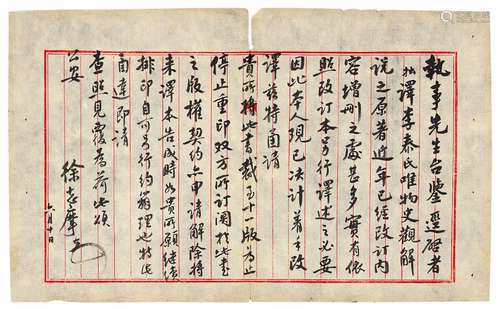 執事先生台鑒逕啟者
拙譯李泰氏唯物史觀解
說之原著近年已經改訂內
容增刪之處甚多實有依
照改訂本另行譯述之必要
因此本人現已決計着手改
譯茲特函請
貴所將此書截至十一版為止
停止重印双方所訂關於此書
之版權契約亦申請解除將
來譯本告成時如貴所願繼續
排印自可另行約理也特此
函達即請
查照見覆為荷此頌
公安
徐志摩
六月十日